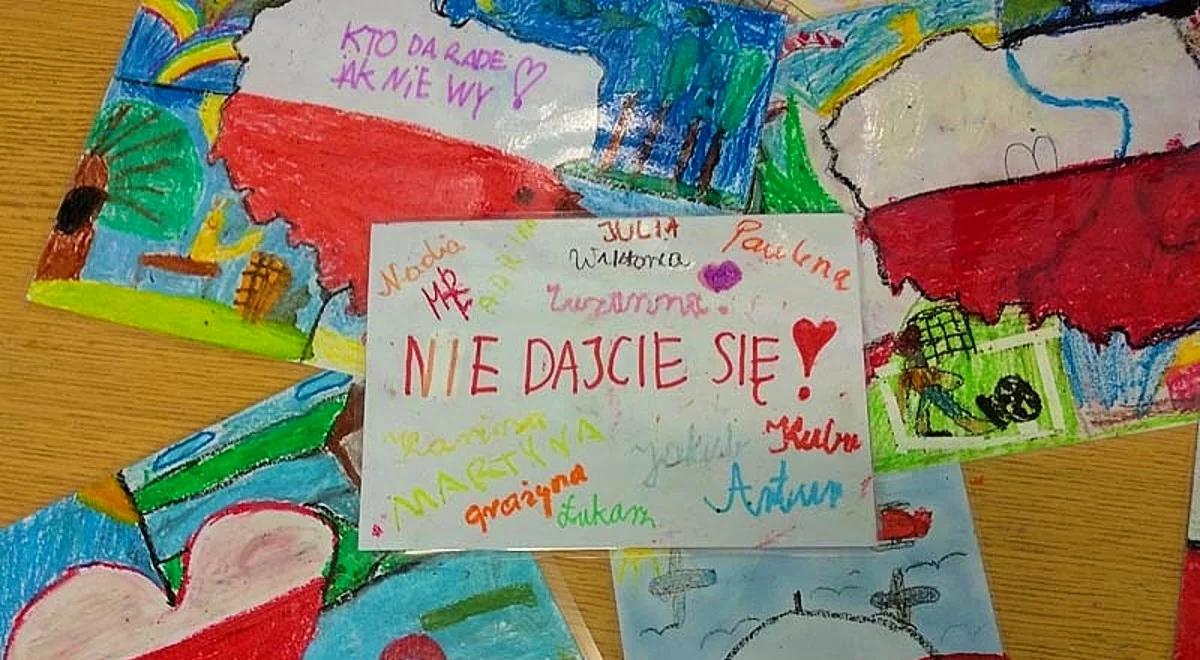 KTO DA RADE
JAK NIE WY
Nadia
ADRIAN
JULIA
Wiktoria
Paulina
Zuzanna
NIE DAJCIE SIĘ!
MARTYNA
Jakub
Kuba
grażyna
Łukasz
Artur